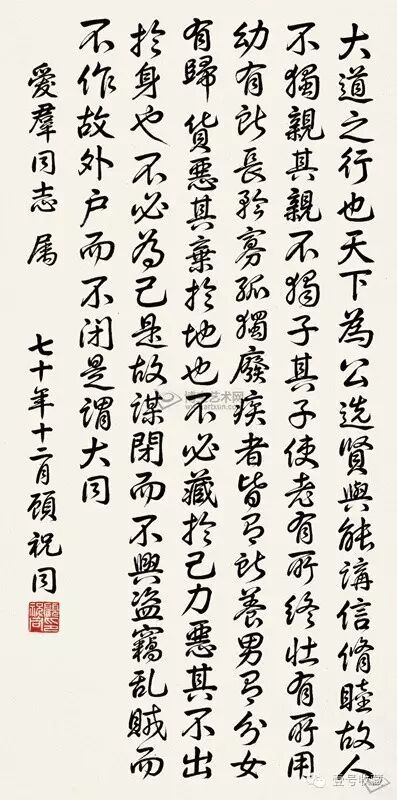 大道之行也天下為公选賢與能講信脩睦故人
不獨親其親不獨子其子使老有所終壮有所用
幼有所長矜寡孤獨廢疾者皆有所養男有分女
有歸貨惡其棄於地也不必藏於己力惡其不出
於身也不必為己是故謀閉而不興盜竊乱賊而
不作故外户而不闭是謂大同
愛羣同志属
七十年十二月顧祝同
艺术网
壹号收藏